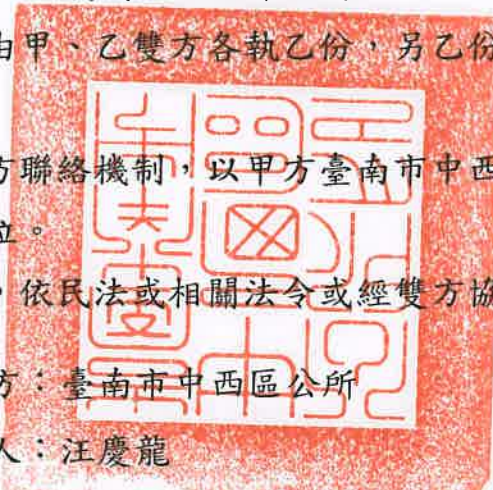 由甲、乙雙方各執乙份，另乙份
方聯絡機制，以甲方臺南市中西
位。
，依民法或相關法令或經雙方協
方：臺南市中西區公所
人：汪慶龍